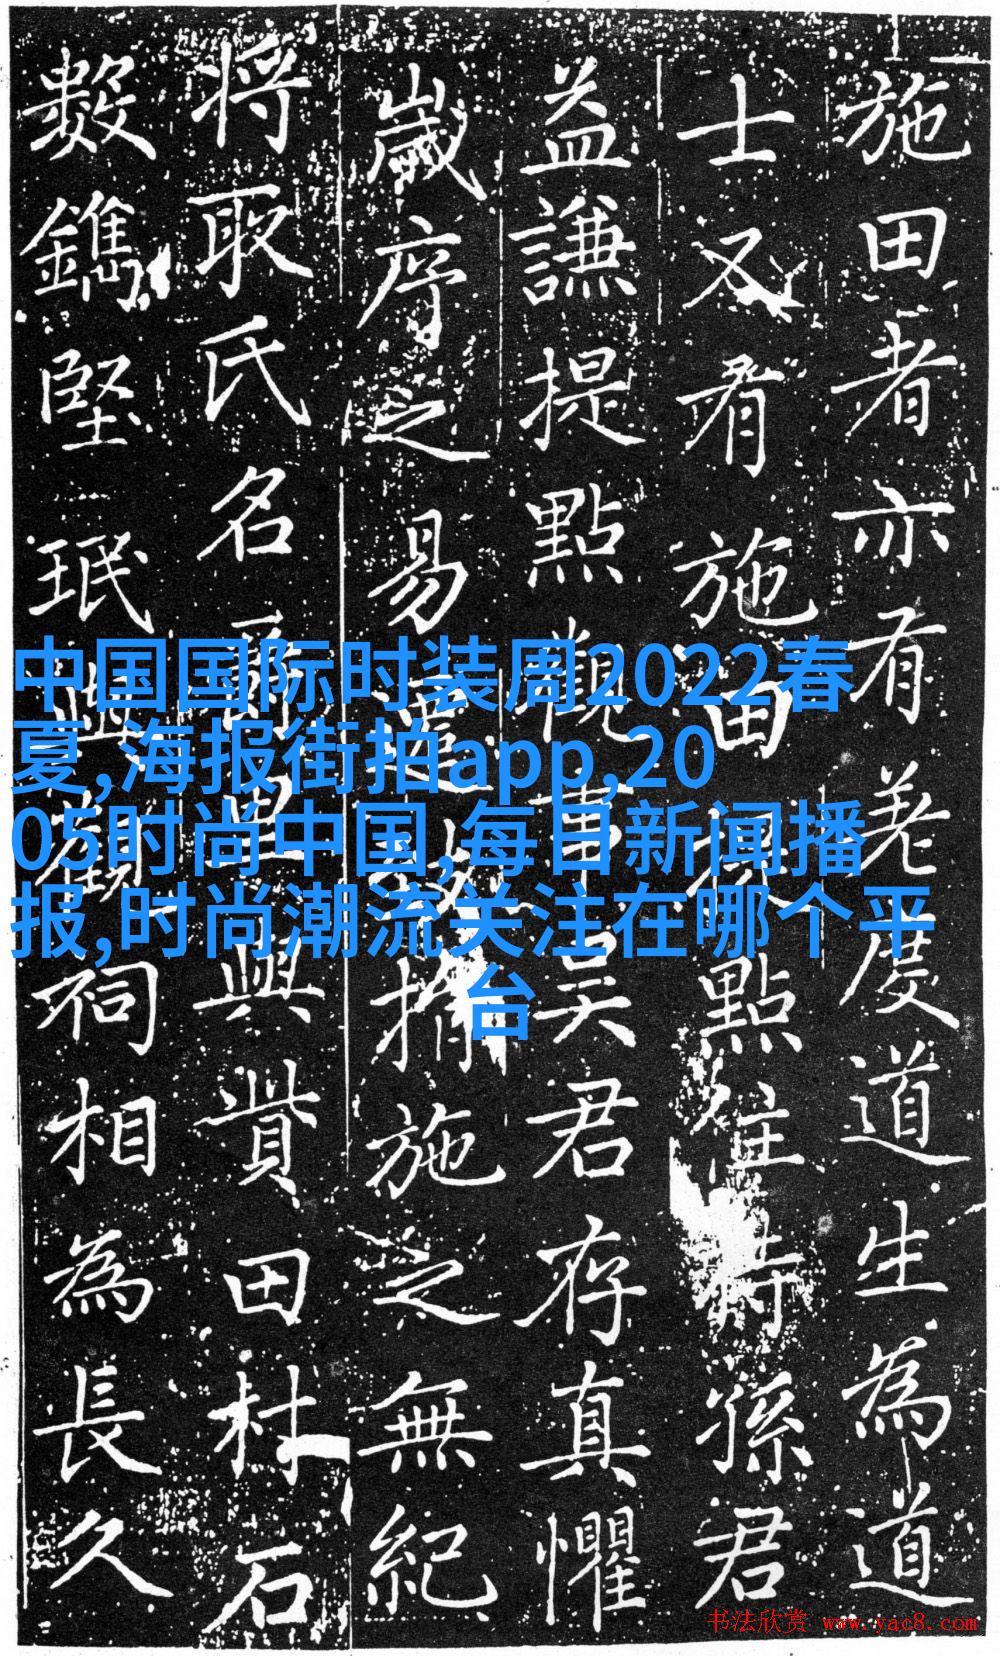 施田者亦有度道生為道
士又有施田提點住持孫君
益謙提點觀事吳君存真懼
歲序之易捐施之無紀
将取氏名里興貲田石
数鐫堅珉祠相為長久
中国国际时装周2022春
夏,海报街拍app,20
05时尚中国,每日新闻播
报,时尚潮流关注在哪个平
台
书法欣赏 www.yac8.com